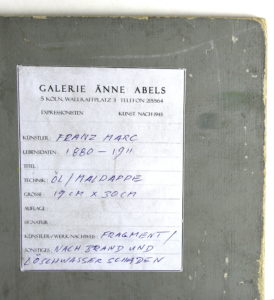 GALERIE ÄNNE ABELS
5 KÖLN, WALLRAFPLATZ 3 TELEFON 215564
EXPRESSIONISTEN KUNST NACH 1945
KÜNSTLER: FRANZ MARC
LEBENSDATEN: 1880 – 1911
TITEL
TECHNIK: ÖL / MALPAPPE
GRÖSSE: 19 CM X 30 CM
AUFLAGE
SIGNATUR
KÜNSTLER/WERK-NACHWEIS: FRAGMENT /
SONSTIGES: NACH BRAND UND
LÖSCHWASSER SCHADEN